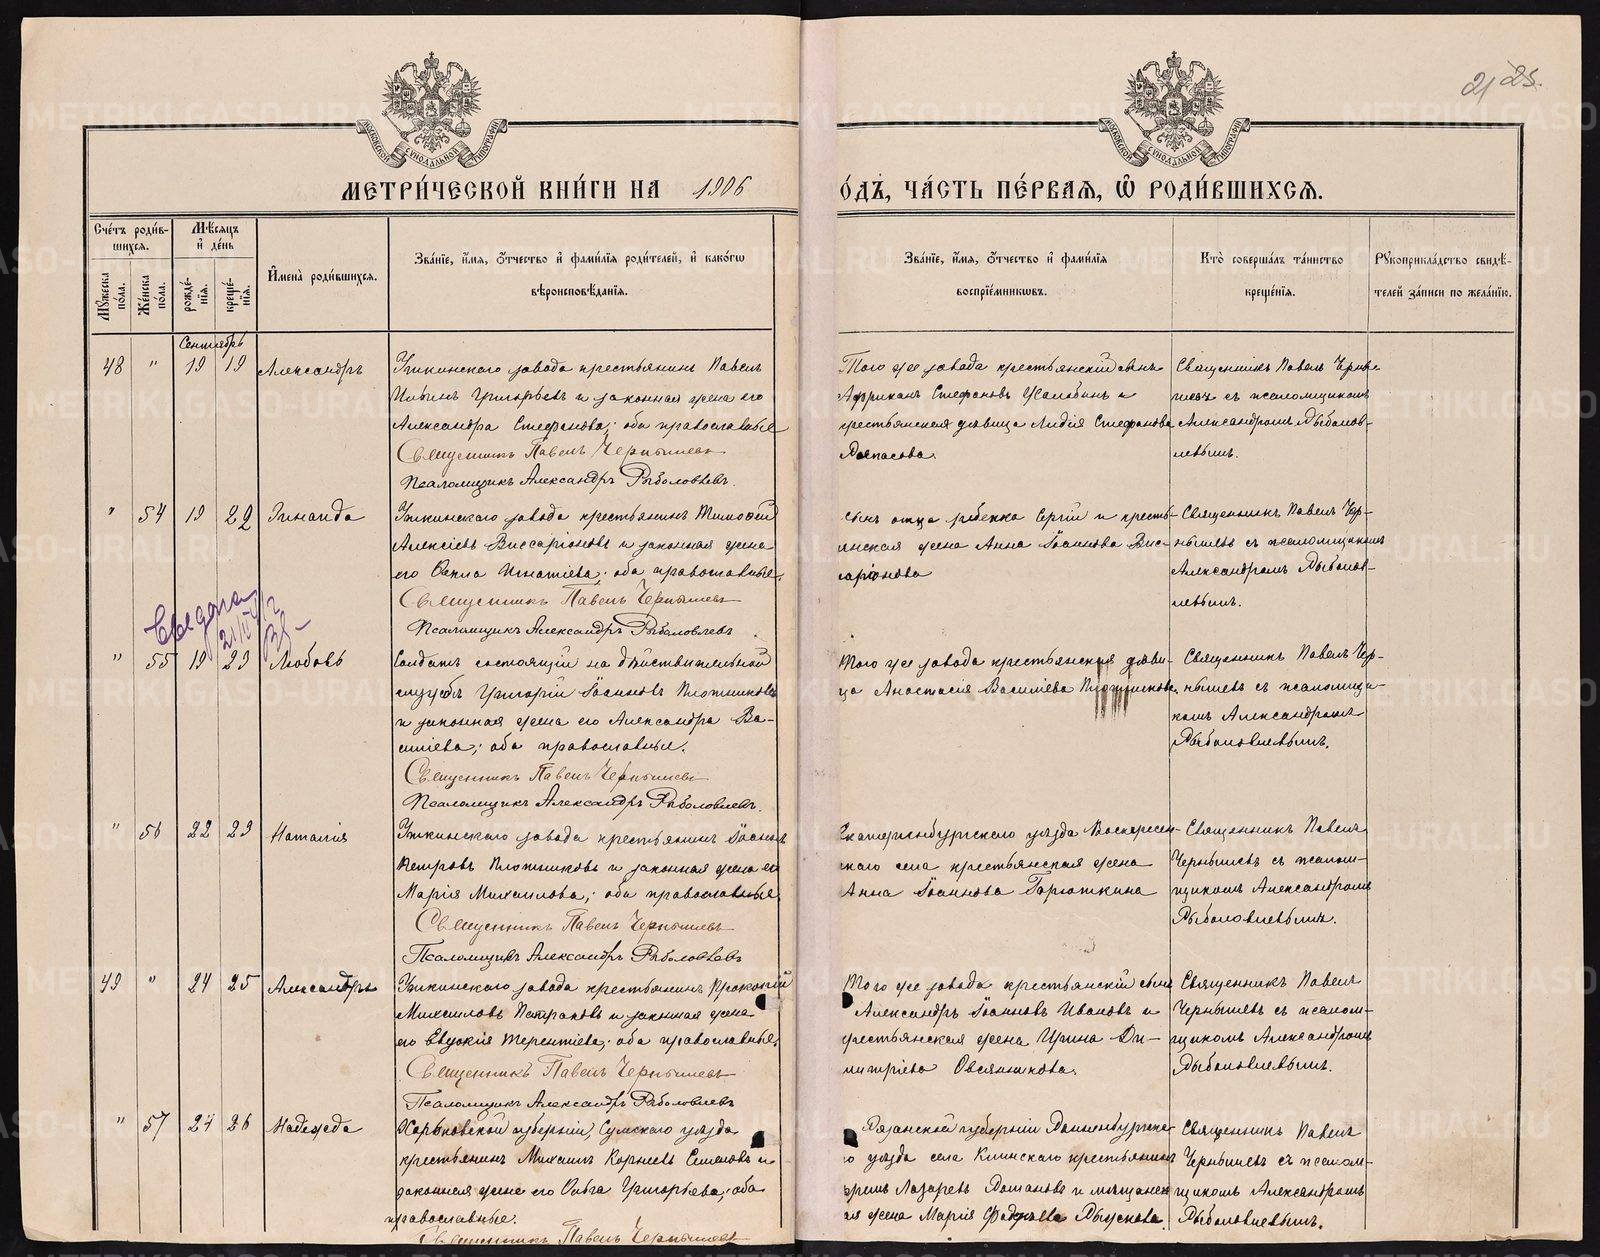 21 25.
МОСКОВСКОЙ СУНОДАЛЬНОЙ ТИПОГРАФІИ
МОСКОВСКОЙ СУНОДАЛЬНОЙ ТИПОГРАФІИ
МЕТРИ́ЧЕСКОЙ КНИ́ГИ НА 1906
О́ДЪ, ЧА́СТЬ ПЕ́РВАЯ, Ѡ҆ РОДИ́ВШИХСЯ.
Сче́тъ роди́вшихся.
Мꙋжеска по́ла.
Же́нска по́ла.
Мѣ́сяцъ и҆ де́нь
рожде́нїя.
креще́нїя.
И҆мена̀ роди́вшихся.
Зва́нїе, и҆́мя, ѻ҆́тчество и҆ фами́лїя роди́телей, и҆ како́гѡ
вѣроисповѣ́данїя.
Зва́нїе, и҆́мя, ѻ҆́тчество и҆ фами́лїя
воспрїе́мникѡвъ.
Кто̀ соверша́лъ та́инство
креще́нїя.
Рꙋкоприкла́дство свидѣ́-
телей за́писи по жела́нїю.
Сентябрь
48 " 19 19 Александръ
Уткинскаго завода крестьянинъ Павелъ
Ильинъ Григорьевъ и законная жена его
Александра Стефанова; оба православные
Священникъ Павелъ Чернышевъ
Псаломщикъ Александръ Рыболовлевъ.
Того же завода крестьянскій сынъ
Африканъ Стефановъ и
крестьянская дѣвица Лидія Стефанова
Священникъ Павелъ Черны-
шевъ съ псаломщикомъ
Александромъ Рыболов-
левымъ.
" 54 19 22 Зинаида
Уткинскаго завода крестьянинъ Тимоѳей
Алексіевъ Виссаріоновъ и законная жена
его Ѳекла Игнатіева; оба православные.
Священникъ Павелъ Чернышевъ
Псаломщикъ Александръ Рыболовлевъ
сынъ отца ребенка Сергій и кресть-
янская жена Анна Іоаннова Вис-
саріонова
Священникъ Павелъ Чер-
нышевъ съ псаломщикомъ
Александромъ Рыболов-
левымъ.
" 55 19 23 Любовь
Солдатъ состоящій на дѣйствительной
службѣ Григорій Іоанновъ Плотниковъ
и законная жена его Александра Ва-
силіева; оба православные.
Священникъ Павелъ Чернышевъ
Псаломщикъ Александръ Рыболовлевъ.
Того же завода крестьянская дѣви-
ца Анастасія Василіева Плотникова.
Священникъ Павелъ Чер-
нышевъ съ псаломщи-
комъ Александромъ
Рыболовлевымъ.
" 56 22 23 Наталія
Уткинскаго завода крестьянинъ Іоаннъ
Петровъ Плотниковъ и законная жена его
Марія Михаилова; оба православные.
Священникъ Павелъ Чернышевъ
Псаломщикъ Александръ Рыболовлевъ
Екатеринбургскаго уѣзда Воскресен-
скаго села крестьянская жена
Анна Іоаннова Горюткина
Священникъ Павелъ
Чернышевъ съ псалом-
щикомъ Александромъ
Рыболовлевымъ.
49 " 24 25 Александръ
Уткинскаго завода крестьянинъ Прокопій
Михаиловъ Патраковъ и законная жена
его Евдокія Терентіева; оба православные.
Священникъ Павелъ Чернышевъ
Псаломщикъ Александръ Рыболовлевъ
Того же завода крестьянскій сынъ
Александръ Іоанновъ Ивановъ и
крестьянская жена Ирина Ди-
митріева Овсянникова.
Священникъ Павелъ
Чернышевъ съ псалом-
щикомъ Александромъ
Рыболовлевымъ.
" 57 24 26 Надежда
Харьковской губерніи, Сумскаго уѣзда
крестьянинъ Михаилъ Корніевъ Семеновъ и
законная жена его Ольга Григорьева; оба
православные.
Священникъ Павелъ Чернышевъ
Рязанской губерніи Данненбургска-
го уѣзда села крестьянинъ
Лазаревъ и мѣщанск-
ая жена Марія
Священникъ Павелъ
Чернышевъ съ псалом-
щикомъ Александромъ
Рыболовлевымъ.
METRIKI.GASO-URAL.RU